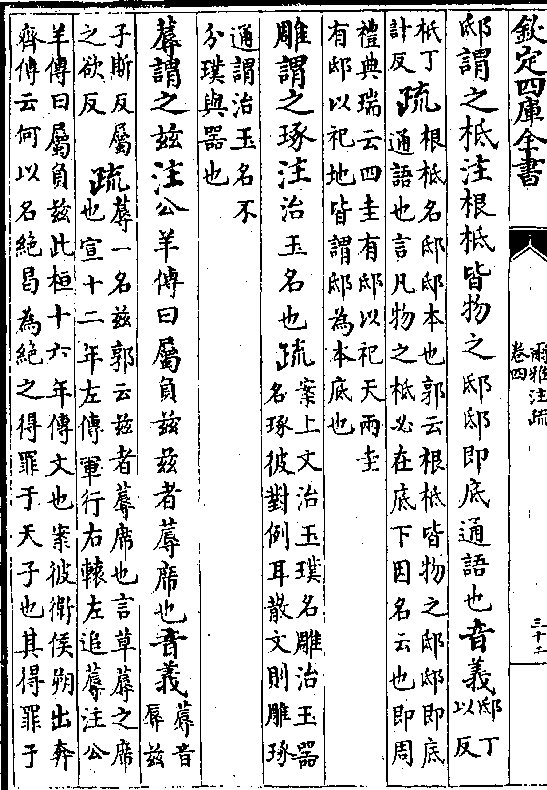 欽定四庫全書
爾雅注疏
卷四
三十二
邸謂之柢注根柢皆物之邸邸即底通語也音義邸丁
以反
柢丁
計反
疏根柢名邸邸本也郭云根柢皆物之邸邸即底
通語也言凡物之柢必在底下因名云也即周
禮典瑞云四圭有邸以祀天兩圭
有邸以祀地皆謂邸為本底也
雕謂之琢注治玉名也疏案上文治玉璞名雕治玉器
名琢彼對例耳散文則雕琢
通謂治玉名不
分璞與器也
蓐謂之兹注公羊傳曰屬負兹兹者蓐席也音義蓐音
辱兹
子斯反屬
之欲反
疏蓐一名兹郭云兹者蓐席也言草蓐之席
也宣十二年左傳軍行右轅左追蓐注公
羊傳曰屬負兹此桓十六年傳文也案彼衛侯朔出奔
齊傳云何以名絕曷為絕之得罪于天子也其得罪于